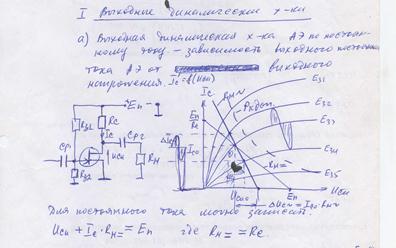 I Выходные динамические х-ки
а) Выходная динамическая х-ка АЭ по постоян-
ному току. – зависимость выходного
тока АЭ от выходного
напряжения. Iс=f(Uси)
Еп
Rз1
Rс
Iс
Ср2
Ср1
Uси
Rн
Rз2
Iс
Rн~
Еп
Rс
Рк доп
Eз1
Eз2
Eз3
Eз4
Eз5
Rн=
Iс0
Uси0
Еп
Uси
ΔUси~ = Iс0·Rн~
Для постоянного тока можно записать:
Uси + Iс·Rн= = Еп где Rн= = Rс